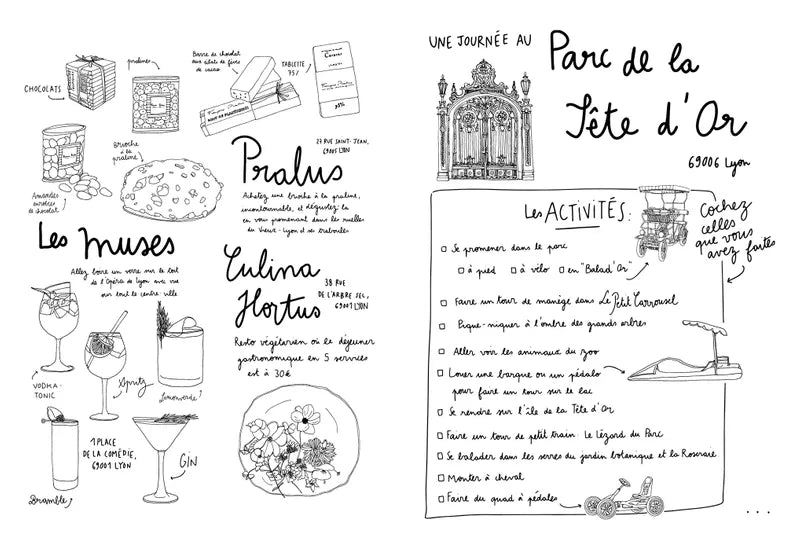 CHOCOLATS
pralines
Barre de chocolat
aux éclats de fève
de cacao
TABLETTE
75%
75%
Brioche
à la
praline
Amandes
enrobées
de chocolat
Pralus
27 RUE SAINT-JEAN,
69005 LYON
Achetez une brioche à la praline,
incontournable, et dégustez-la
en vous promenant dans les ruelles
du Vieux-Lyon et ses traboules
Les Muses
Allez boire un verre sur le toit
de l'Opéra de Lyon avec vue
sur tout le centre-ville
VODKA-
TONIC
Spritz
Limoncello?
Bramble
1 PLACE
DE LA COMÉDIE,
69001 LYON
GIN
Culina
Hortus
38 RUE
DE L'ARBRE SEC,
69001 LYON
Resto végétarien où le déjeuner
gastronomique en 5 services
est à 30€
UNE JOURNÉE AU
Parc de la
Tête d'Or
69006 Lyon
Les ACTIVITÉS:
Cochez
celles
que vous
avez faites
Se promener dans le parc
à pied à vélo en "Balad'Or"
Faire un tour de manège dans Le Petit Carrousel
Pique-niquer à l'ombre des grands arbres
Aller voir les animaux du zoo
Louer une barque ou un pédalo
pour faire un tour sur le lac
Se rendre sur l'île de la Tête d'Or
Faire un tour de petit train: Le Lézard du Parc
Se balader dans les serres du jardin botanique et la Roseraie
Monter à cheval
Faire du quad à pédales
...